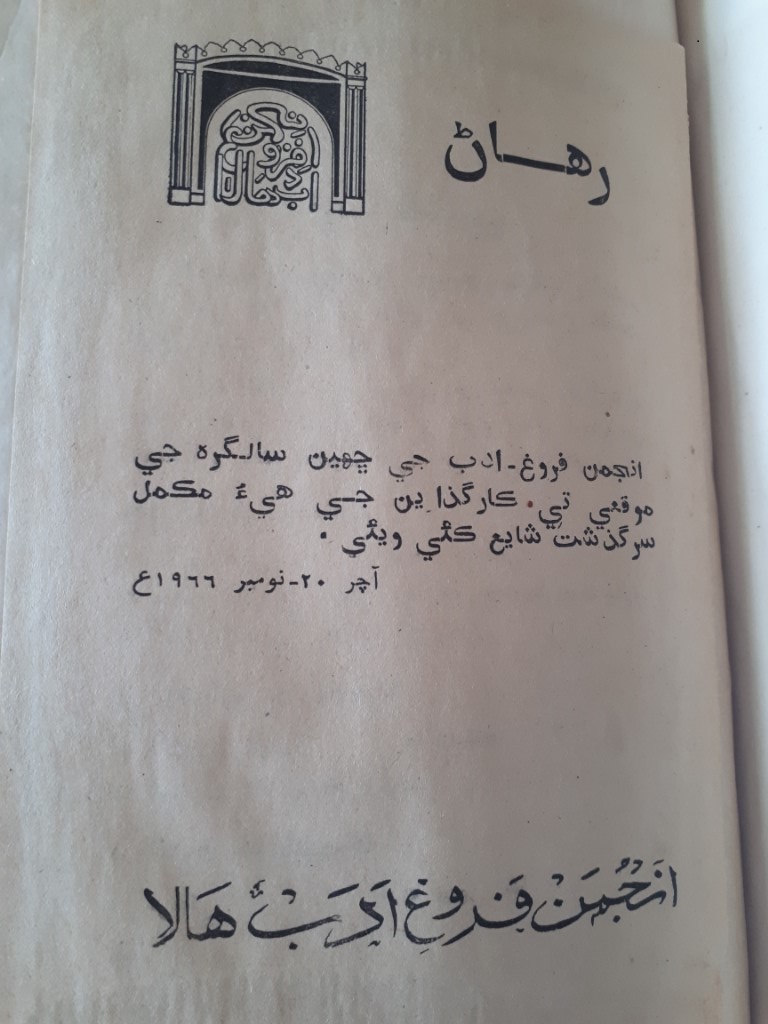 رهاڻ
انجمن فروغ ادب هالا
انجمن فروغ-ادب جي ڇهين سالگره جي
موقعي تي ڪارگذارين جي هيءَ مڪمل
سرگذشت شايع ڪئي ويئي.
آچر ۲۰-نومبر ۱۹۶۶ع
انجمن فروغ ادب هالا